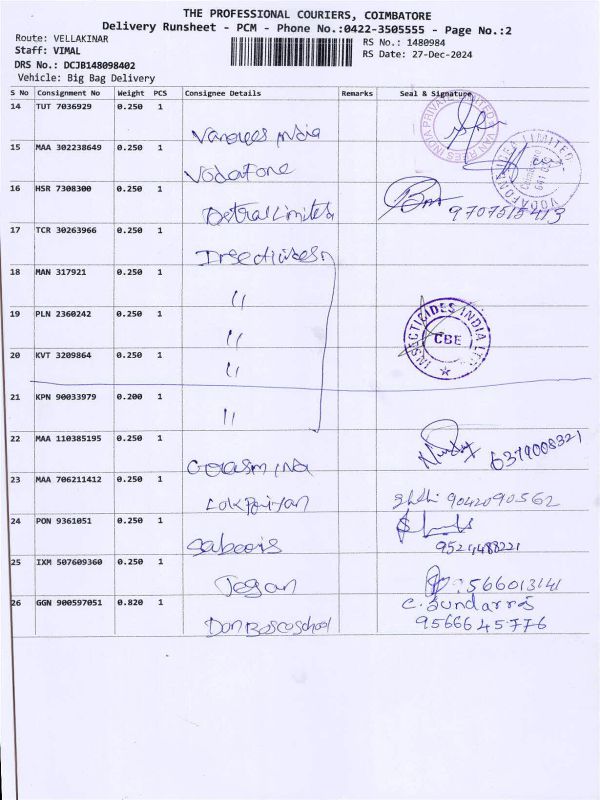 THE PROFESSIONAL COURIERS, COIMBATORE
Delivery Runsheet - PCM - Phone No.:0422-3505555 - Page No.:2
Route: VELLAKINAR
RS No.: 1480984
Staff: VIMAL
RS Date: 27-Dec-2024
DRS No.: DCJB148098402
Vehicle: Big Bag Delivery
S No Consignment No Weight PCS Consignee Details Remarks Seal & Signature
14 TUT 7036929 0.250 1
VAN REES INDIA PRIVATE LIMITED
15 MAA 302238649 0.250 1
Vodafone
VODAFONE IDEA LIMITED
16 HSR 7308300 0.250 1
9707515413
17 TCR 30263966 0.250 1
18 MAN 317921 0.250 1
"
19 PLN 2360242 0.250 1
"
INSECTICIDES INDIA LTD
CBE
20 KVT 3209864 0.250 1
"
21 KPN 90033979 0.200 1
"
22 MAA 110385195 0.250 1
6379008321
23 MAA 706211412 0.250 1
9042090562
24 PON 9361051 0.250 1
25 IXM 507609360 0.250 1
Jegan
26 GGN 900597051 0.820 1
Don Bosco school
9566645776